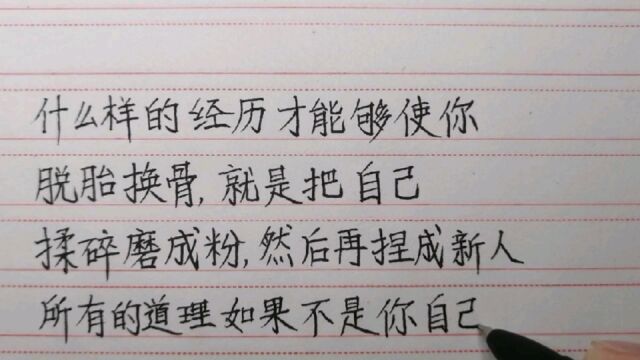 什么样的经历才能够使你
脱胎换骨,就是把自己
揉碎磨成粉,然后再捏成新人
所有的道理如果不是你自己